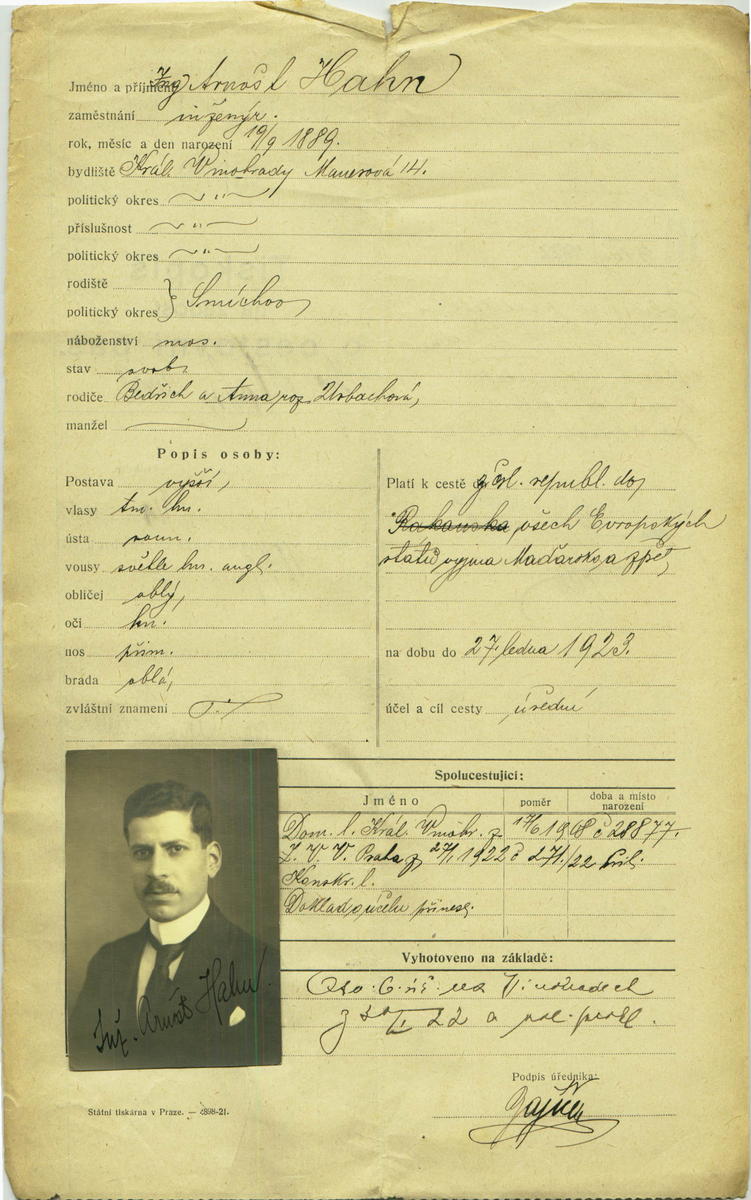 Jméno a příjmení Ing Arnošt Hahn
zaměstnání inženýr.
rok, měsíc a den narození 19/9 1889.
bydliště Král. Vinohrady Manesova 14.
politický okres ~ " ~
příslušnost ~ " ~
politický okres ~ " ~
rodiště
politický okres } Smíchov
náboženství mos.
stav svob.
rodiče Bedřich a Anna roz. Urbachová,
manžel
Popis osoby:
Postava vyšší,
vlasy tm. hn.
ústa soum.
vousy světle hn. angl.
obličej oblý,
oči hn.
nos přím.
brada oblá,
zvláštní znamení
Platí k cestě z čsl. republ. do
Rakouska všech Evropských
států vyjma Maďarsko, a zpět,
na dobu do 27. ledna 1923.
účel a cíl cesty úřední
Spolucestující:
Jméno poměr doba a místo narození
Dom. l. Král. Vinohr. z 17/6 1908 č 28877.
Z. V. V. Praha z 27/1 1922 č 271/22
l.
Doklad o účelu přinesl.
Vyhotoveno na základě:
na Vinohradech
22 a pol.
Podpis úředníka:
Inž. Arnošt Hahn
Státní tiskárna v Praze. — 4898-21.